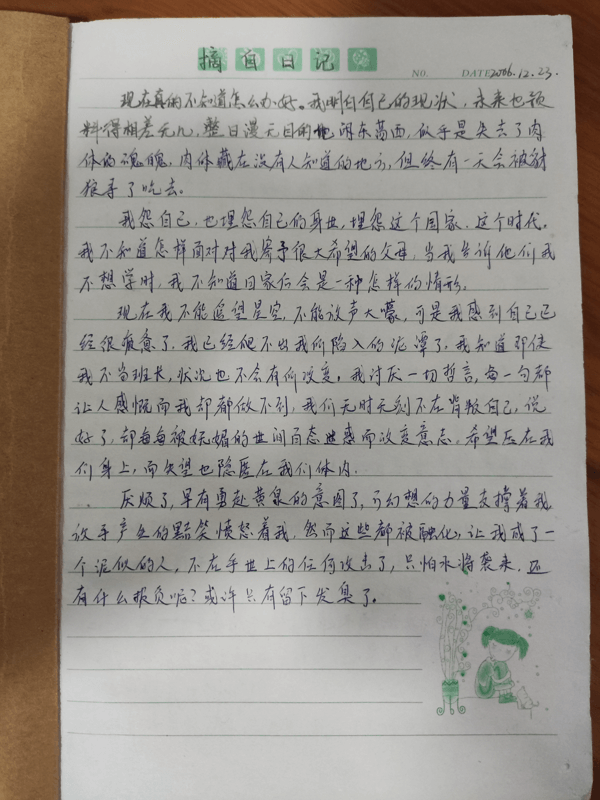 摘自日记
NO. DATE 2006.12.23.
现在真的不知道怎么办好。我明白自己的现状,未来也预
料得相差无几,整日漫无目的地闲东荡西,似乎是失去了肉
体的魂魄,肉体藏在没有人知道的地方,但终有一天会被豺
狼寻了吃去。
我怨自己,也埋怨自己的身世,埋怨这个国家,这个时代。
我不知道怎样面对对我寄予很大希望的父母,当我告诉他们我
不想学时,我不知道回家后会是一种怎样的情形。
现在我不能遥望星空,不能放声大嚎,可是我感到自己已
经很疲惫了,我已经爬不出我所陷入的泥潭了,我知道即使
我不当班长,状况也不会有何改变。我讨厌一切哲言,每一句都
让人感慨而我却都做不到,我们无时无刻不在背叛自己,说
好了,却每每被妩媚的世间百态迷惑而改变意志,希望压在我
们身上,而失望也隐匿在我们体内。
厌烦了,早有勇赴黄泉的意图了,可幻想的力量支撑着我
放手产生的黠笑愤怒着我,然而这些都被融化,让我成了一
个泥似的人,不在乎世上的任何攻击了,只怕水将袭来,还
有什么报负呢?或许只有留下发臭了。